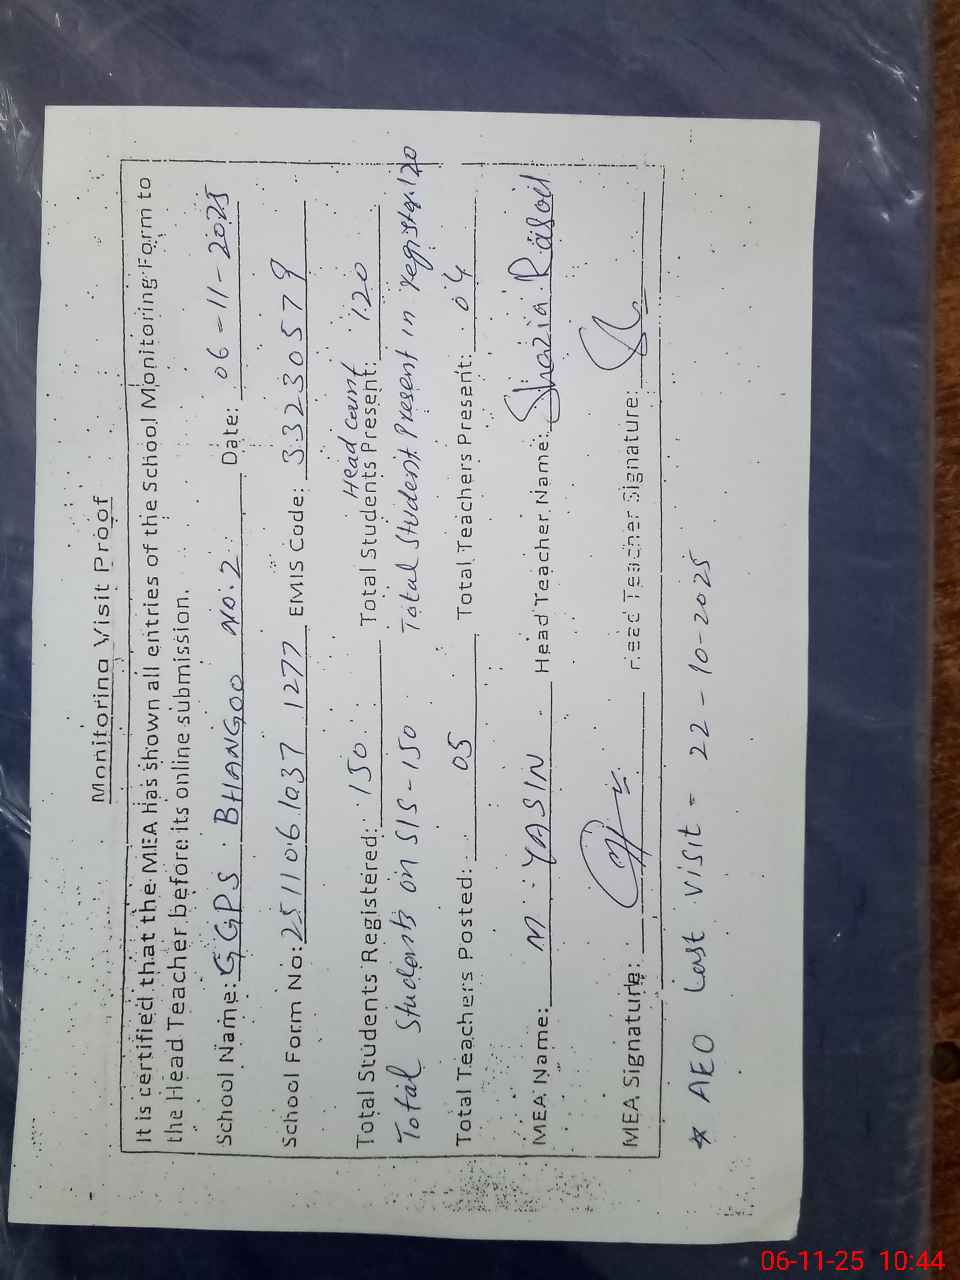 Monitoring Visit Proof
It is certified that the MEA has shown all entries of the School Monitoring Form to
the Head Teacher before its online submission.
School Name: GGPS BHANGOO NO.2 Date: 06-11-2025
School Form No: 251106 1037 1277 EMIS Code: 33230579
Head Count
Total Students Registered: 150 Total Students Present: 120
Total Students on SIS-150 Total Student Present in register.120
Total Teachers Posted: 05 Total Teachers Present: 04
MEA Name: M. YASIN Head Teacher Name: Shazia Rasool
MEA Signature: Head Teacher Signature:
* AEO Last visit - 22-10-2025
06-11-25 10:44